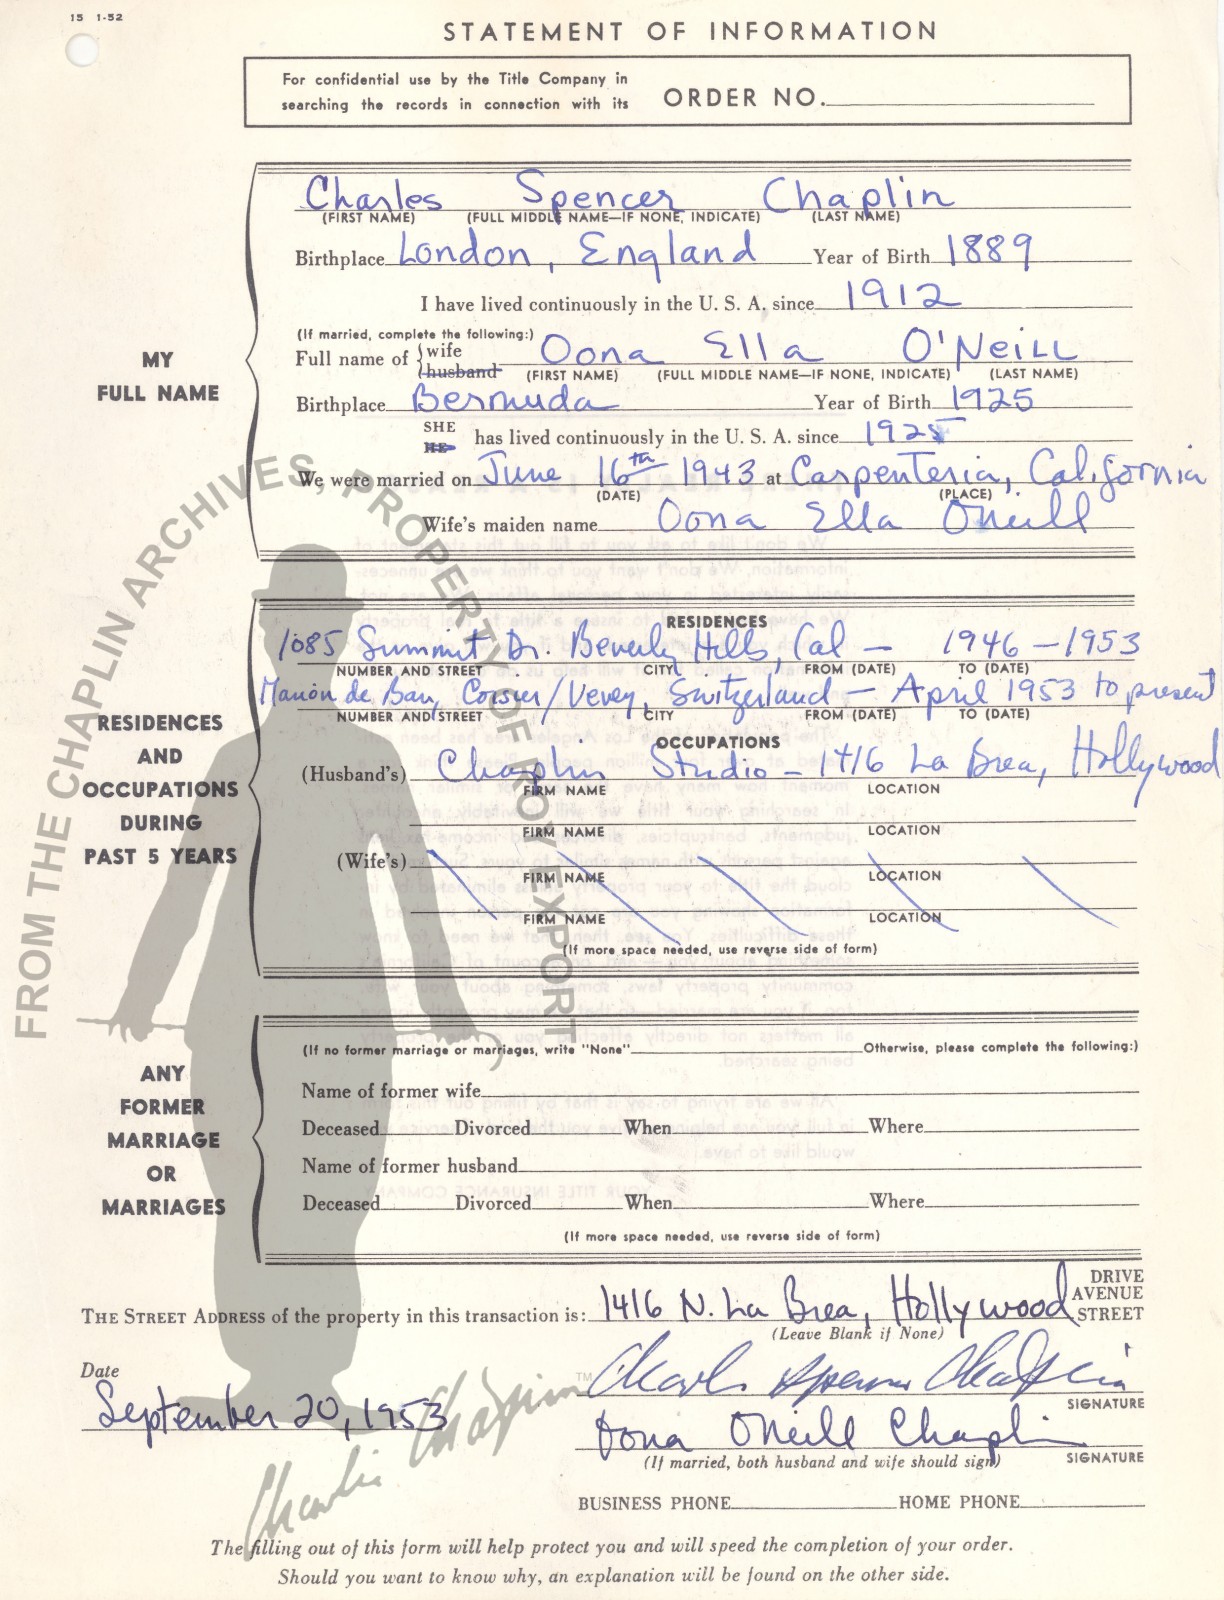 15 1-52
STATEMENT OF INFORMATION
For confidential use by the Title Company in
searching the records in connection with its ORDER NO.
Charles Spencer Chaplin
(FIRST NAME) (FULL MIDDLE NAME—IF NONE, INDICATE) (LAST NAME)
Birthplace London, England Year of Birth 1889
I have lived continuously in the U. S. A. since 1912
(If married, complete the following:)
Full name of {wife husband Oona Ella O'Neill
(FIRST NAME) (FULL MIDDLE NAME—IF NONE, INDICATE) (LAST NAME)
MY
FULL NAME
Birthplace Bermuda Year of Birth 1925
SHE
HE has lived continuously in the U. S. A. since 1925
We were married on June 16th 1943 at Carpenteria, California
(DATE) (PLACE)
Wife's maiden name Oona Ella O'Neill
RESIDENCES
1085 Summit Dr. Beverly Hills, Cal — 1946 — 1953
NUMBER AND STREET CITY FROM (DATE) TO (DATE)
Manoir de Ban, Corsier/Vevey, Switzerland — April 1953 to present
NUMBER AND STREET CITY FROM (DATE) TO (DATE)
RESIDENCES
AND
OCCUPATIONS
DURING
PAST 5 YEARS
OCCUPATIONS
(Husband's) Chaplin Studio — 1416 La Brea, Hollywood
FIRM NAME LOCATION
FIRM NAME LOCATION
(Wife's)
FIRM NAME LOCATION
FIRM NAME LOCATION
(If more space needed, use reverse side of form)
ANY
FORMER
MARRIAGE
OR
MARRIAGES
(If no former marriage or marriages, write "None" Otherwise, please complete the following:)
Name of former wife
Deceased Divorced When Where
Name of former husband
Deceased Divorced When Where
(If more space needed, use reverse side of form)
THE STREET ADDRESS of the property in this transaction is: 1416 N. La Brea, Hollywood
DRIVE
AVENUE
STREET
(Leave Blank if None)
Date
September 20, 1953
Charles Spencer Chaplin
SIGNATURE
Oona O'Neill Chaplin
(If married, both husband and wife should sign) SIGNATURE
BUSINESS PHONE HOME PHONE
The filling out of this form will help protect you and will speed the completion of your order.
Should you want to know why, an explanation will be found on the other side.
FROM THE CHAPLIN ARCHIVES, PROPERTY OF ROY EXPORT
Charlie Chaplin TM